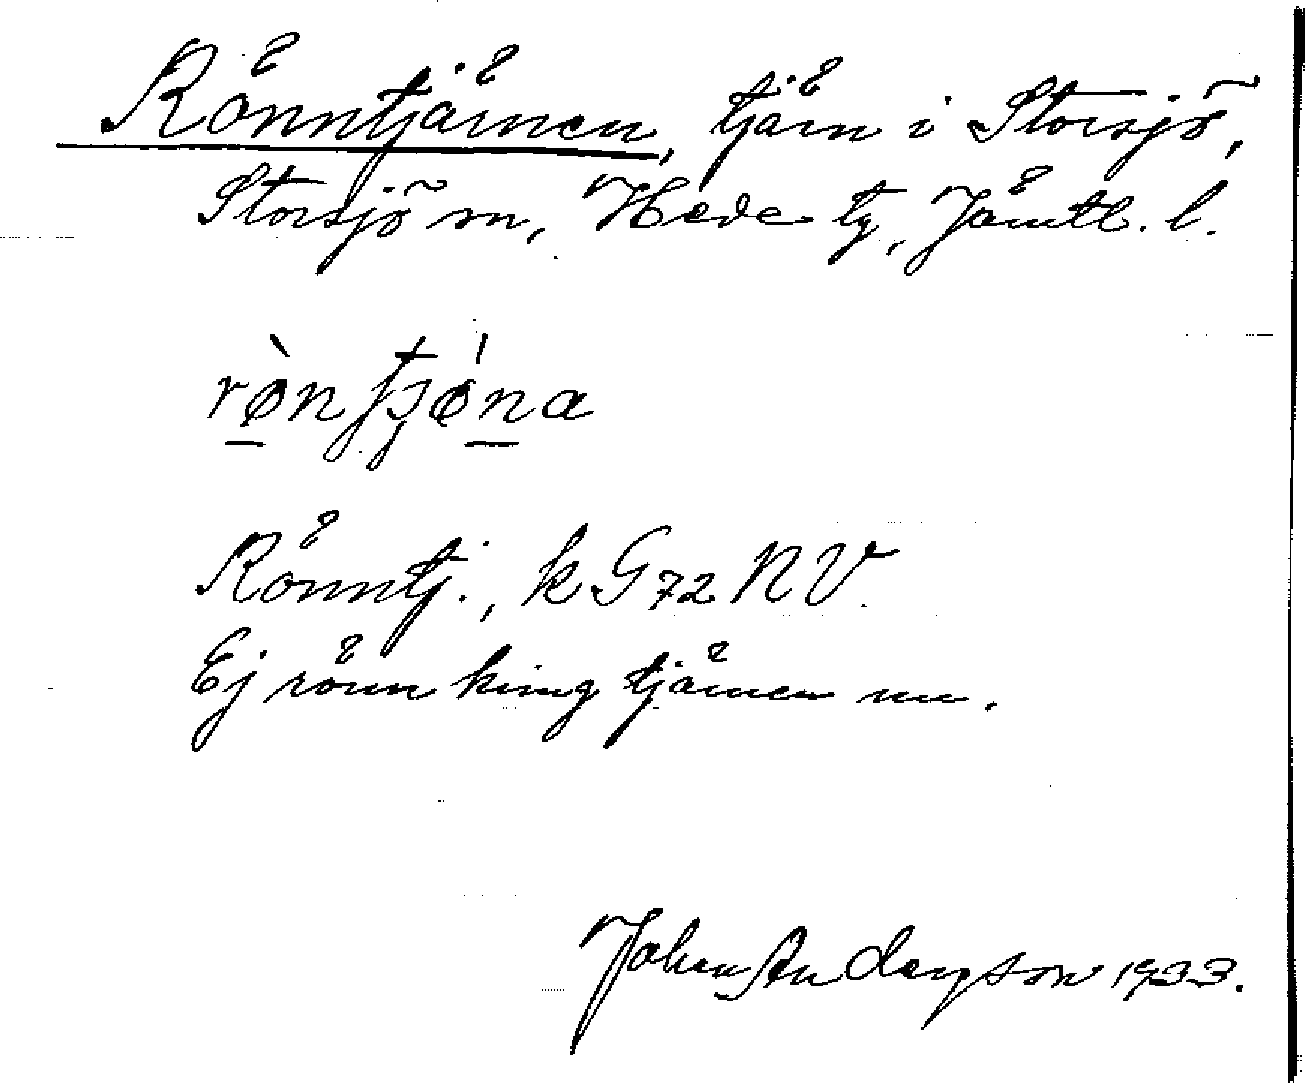 Rönntjärnen, tjärn i Storsjö,
Storsjö sn, Hede tg, Jämtl. l.
Rönntj., k G 72 NV.
Ej rönn kring tjärnen nu.
Johan Anderson 1933.